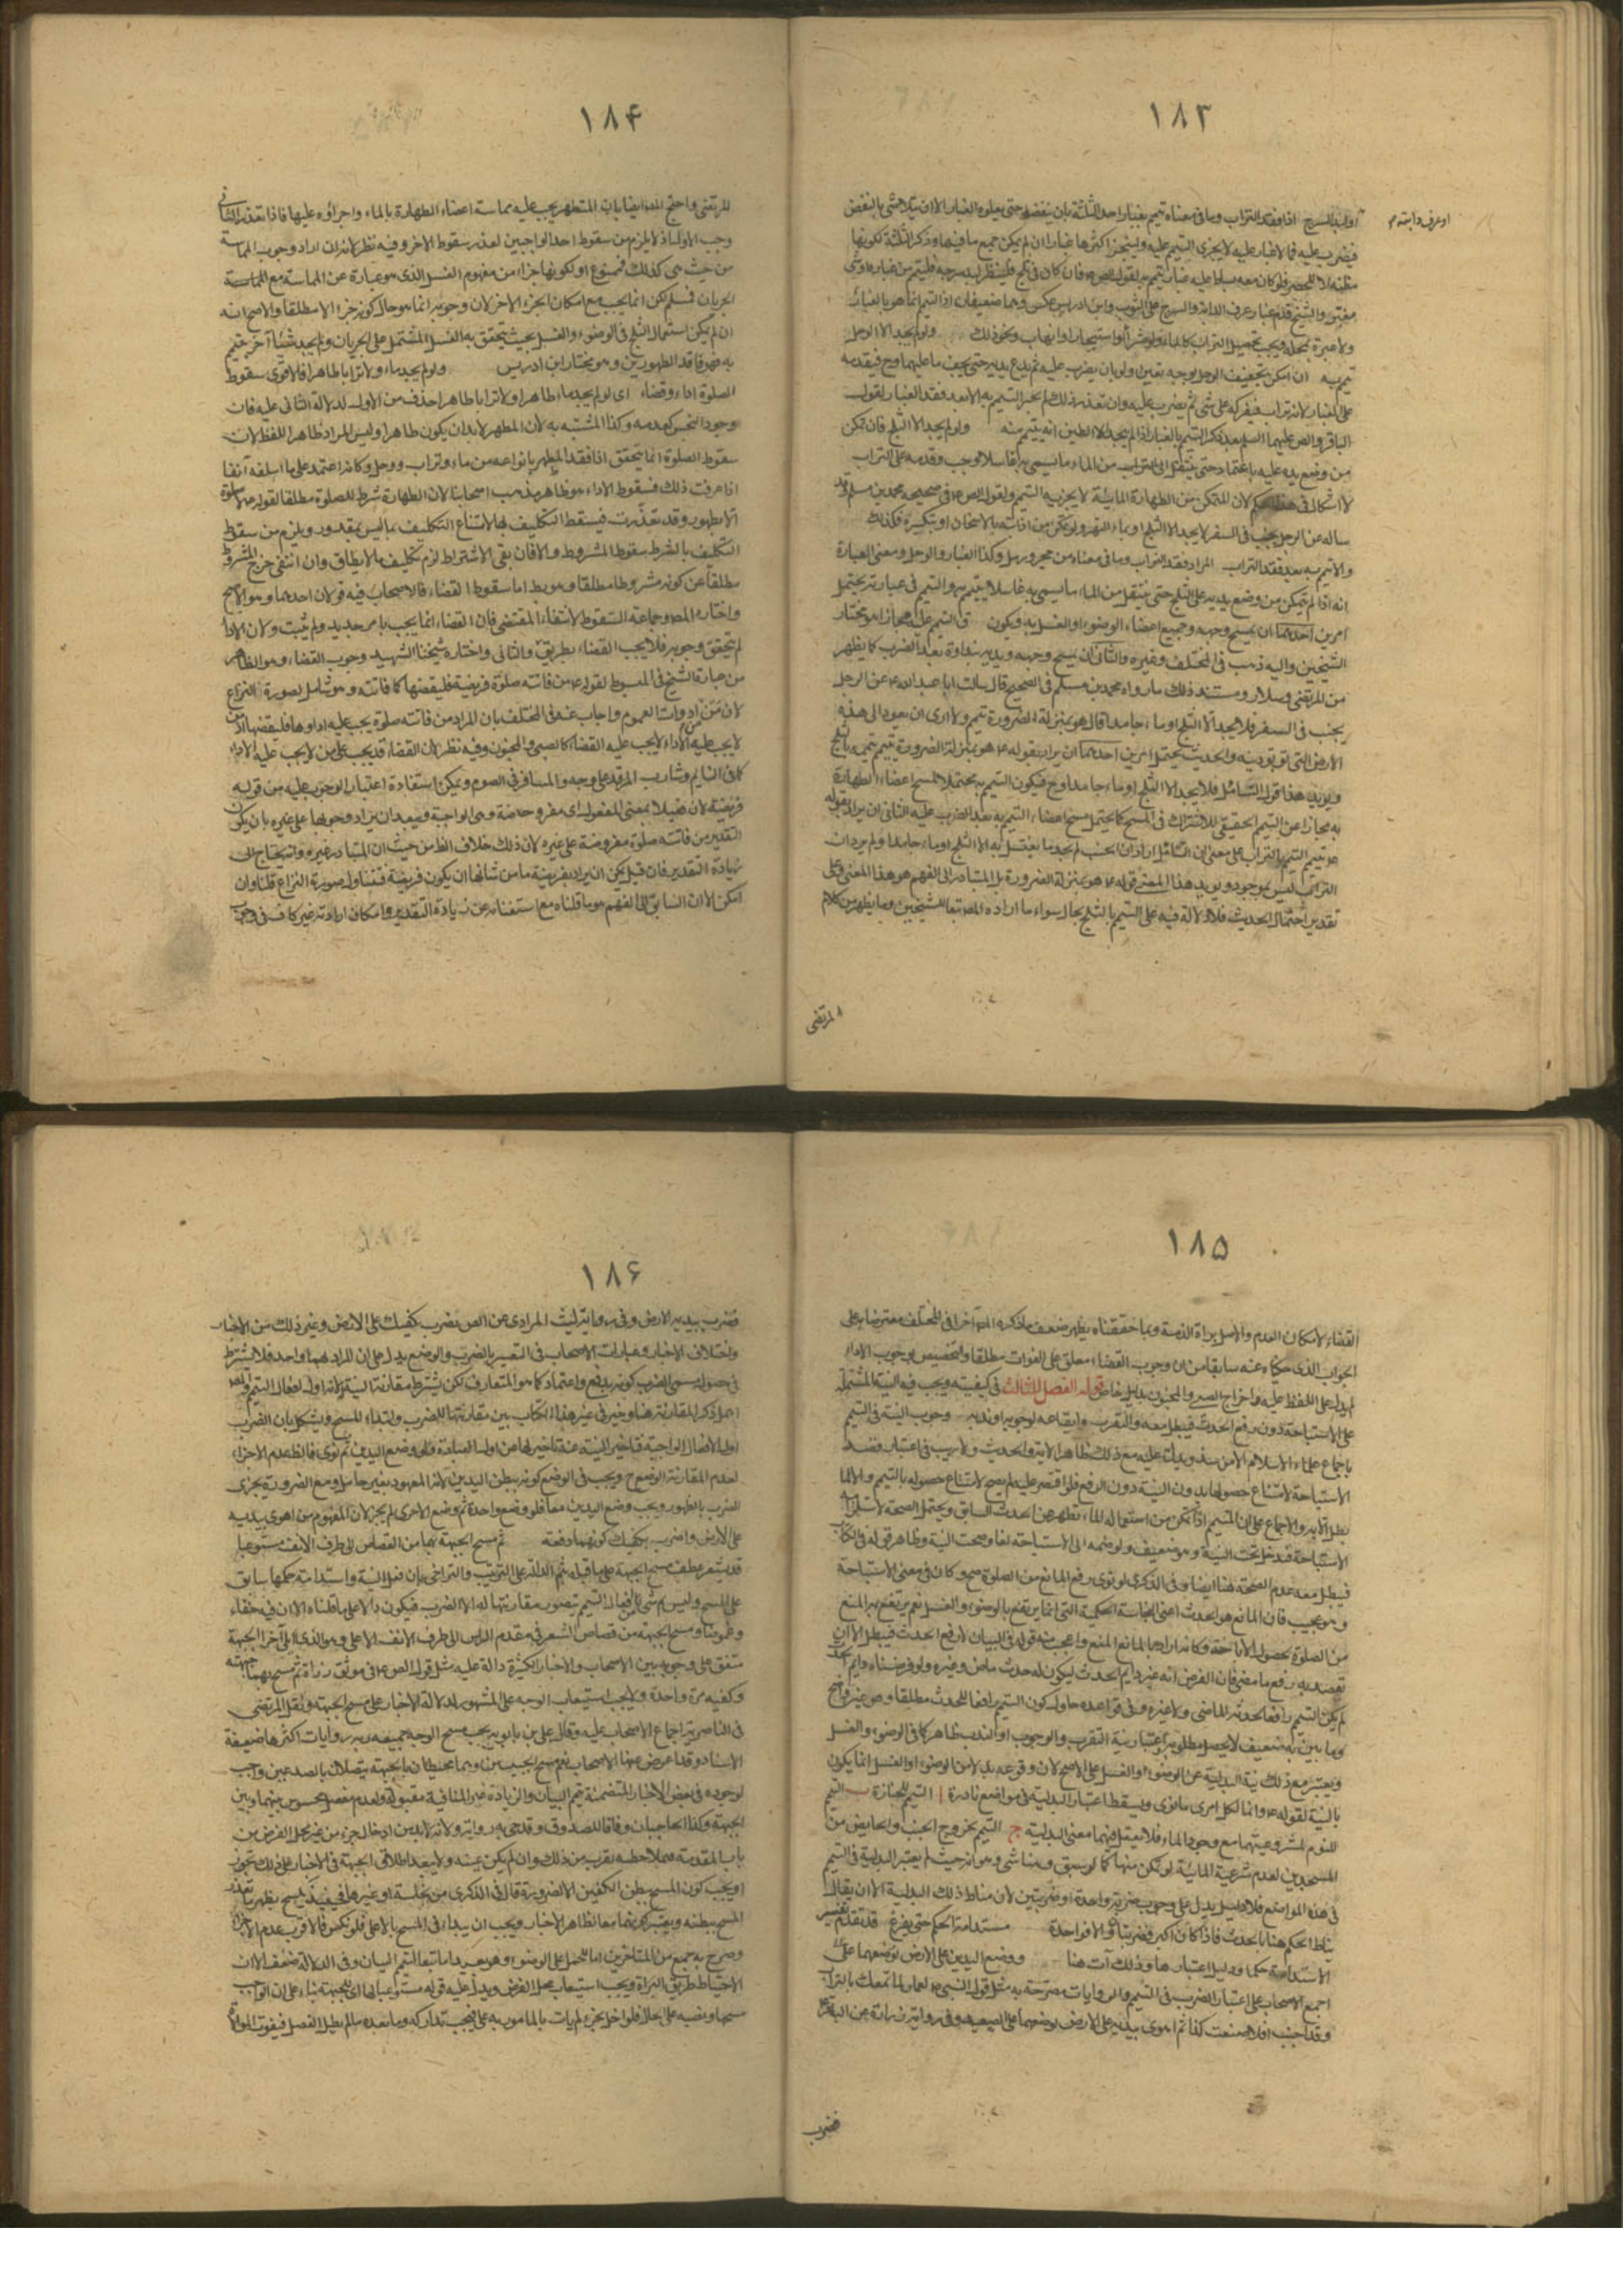 ١٨٣
او عرف دابته م
او لبد السرج اذا فقد التراب وما فى معناه تيمم بغبار احد الثلثة بان ينفضه حتى يعلوه الغبار الا ان يتلاشى بالنفض
فيضرب عليه فما لا غبار عليه لا يجزى التيمم عليه وليتحر اكثرها غبارا ان لم يكن جميع ما فيها وذكر الثلثة لكونها
ولا عبرة بمحله ويجب تحصيل التراب كالماء ولو بشراء او استيجار او ايهاب ونحو ذلك ولو لم يجد الا الوحل
تيمم به ان امكن تجفيف الوحل بوجه تعين ولو بان يضرب عليه ثم يدع يديه حتى يجف ما عليهما وح فيقدمه
على الغبار لانه تراب فيفركه على شئ ثم يضرب عليه وان تعذر ذلك لم يجز التيمم به الا بعد فقد الغبار لقول
الباقر والص عليهما السلم بعد ذكر التيمم بالغبار اذا لم يجد الا الطين انه يتيمم منه ولو لم يجد الا الثلج فان تمكن
من وضع يده عليه باعتماد حتى ينتقل الى التراب من الماء ما يسمى به غاسلا وجب وقدمه على التراب
لا اشكال فى هذا الحكم لان المتمكن من الطهارة المائية لا يجزيه التيمم ولقول الص ع فى صحيحه محمد بن مسلم وقد
ساله عن الرجل يجنب فى السفر لا يجد الا الثلج او ماء النهر ولو تمكن من اذابته بالاسخان او بتكسيره فكذلك
والا تيمم به بعد فقد التراب المراد فقد التراب وما فى معناه من حجر ورمل وكذا الغبار والوحل ومعنى العبارة
انه اذا لم يتمكن من وضع يديه على الثلج حتى ينتقل من الماء ما يسمى به غاسلا يتيمم به والتيمم فى عبارته يحتمل
امرين احدهما ان يمسح وجهه وجميع اعضاء الوضوء او الغسل به ويكون التيمم عليه مجازا هو مختار
الشيخين واليه ذهب فى المختلف وغيره والثانى ان يمسح وجهه ويديه بنداوة بعد الضرب كما يظهر
من المرتضى وسلار ومستند ذلك ما رواه محمد بن مسلم فى الصحيح قال سالت ابا عبد الله ع عن الرجل
يجنب فى السفر فلا يجد الا الثلج او ماء جامدا قال هو بمنزلة الضرورة تيمم ولا ارى ان يعود الى هذه
الارض التى توبق دينه والحديث يحتمل امرين احدهما ان يراد بقوله ع هو بمنزلة الضرورة يتيمم تيممه بالثلج
ويؤيد هذا قول السائل فلا يجد الا الثلج او ماء جامدا وح فيكون التيمم به محتملا لمسح اعضاء الطهارة
به مجازا عن التيمم الحقيقى للاشتراك فى المسح كما يحتمل مسح اعضاء التيمم به بعد الضرب عليه الثانى ان يراد بقوله
هو يتيمم التيمم بالتراب على معنى ان السائل اراد ان الجنب لم يجد ما يغتسل به الا الثلج او ماء جامدا ولم يرد ان
التراب ليس بموجود ويؤيد هذا المعنى قوله ع هو بمنزلة الضرورة بل المتبادر الى الفهم هو هذا المعنى وعلى
تقدير احتمال الحديث فلا دلالة فيه على التيمم بالثلج بحال سواء ما اراده المص تبعا للشيخين وما يظهر من كلام
المرتضى
١٨۴
المرتضى واحتج المص ايضا بان المتطهر يجب عليه مماسة اعضاء الطهارة بالماء واجراؤه عليها فاذا تعذر الثانى
وجب الاول اذ لا يلزم من سقوط احد الواجبين لعذر سقوط الاخر وفيه نظر لانه ان اراد وجوب المماسة
من حيث هى كذلك فممنوع او لكونها جزاء من مفهوم الغسل الذى هو عبارة عن المماسة مع
الجريان فمسلم لكن انما يجب مع امكان الجزء الاخر لان وجوبه انما هو حال كونه جزءا لا مطلقا والاصح انه
ان لم يكن استعمال الثلج فى الوضوء والغسل بحيث يتحقق به الغسل المشتمل على الجريان ولم يجد شيئا آخر يتيمم
به فهو فاقد الطهورين وهو مختار ابن ادريس ولو لم يجد ماء ولا ترابا طاهرا فالاقوى سقوط
الصلوة اداء وقضاء اى لو لم يجد ماء طاهرا ولا ترابا طاهرا حذف من الاول لدلالة الثانى عليه فان
وجود النجس كعدمه وكذا المشتبه به لان المطهر لا بد ان يكون طاهرا وليس المراد ظاهر اللفظ لان
سقوط الصلوة انما يتحقق اذا فقد المطهر بانواعه من ماء وتراب ووحل وكانه اعتمد على ما اسلفه آنفا
اذا عرفت ذلك فسقوط الاداء هو ظاهر مذهب اصحابنا لان الطهارة شرط للصلوة مطلقا لقوله ع لا صلوة
الا بطهور وقد تعذرت فيسقط التكليف بها لامتناع التكليف بما ليس بمقدور ويلزم من سقوط
التكليف بالشرط سقوط المشروط والا فان بقى الاشتراط لزم تكليف ما لا يطاق وان انتفى خرج المشروط
مطلقا عن كونه مشروطا مطلقا وهو بط اما سقوط القضاء فللاصحاب فيه قولان احدهما وهو الاصح
واختاره المص وجماعة السقوط لانتفاء المقتضى فان القضاء انما يجب بامر جديد ولم يثبت ولان الاداء
لم يتحقق وجوبه فلا يجب القضاء بطريق والثانى واختاره شيخنا الشهيد وجوب القضاء وهو الظاهر
من عبارة الشيخ فى المبسوط لقوله ع من فاتته صلوة فريضة فليقضها كما فاتته وهو شامل لصورة النزاع
لان من ادوات العموم واجاب عنه فى المختلف بان المراد من فاتته صلوة يجب عليه اداؤها فليقضها اذ من
لا يجب عليه الاداء لا يجب عليه القضاء كالصبى والمجنون وفيه نظر لان القضاء قد يجب على من لا يجب عليه الاداء
كما فى النايم وشارب المرقد على وجه والمسافر فى الصوم ويمكن استفادة اعتبار الوجوب عليه من قوله
فريضة لان فعيلا بمعنى المفعول اى مفروضة وهى الواجبة ويبعد ان يراد وجوبها على غيره بان يكون
التقدير من فاتته صلوة مفروضة على غيره لان ذلك خلاف الظ من حيث ان المتبادر غيره وانه يحتاج الى
زيادة التقدير فان قيل يمكن ان يراد بفريضة ما من شانها ان يكون فريضة فتتناول صورة النزاع قلنا وان
امكن الا ان السابق الى الفهم هو ما قلناه مع استغنائه عن زيادة التقدير وامكان ارادته غير كاف فى وجوب
١٨۵
القضاء لامكان العدم والاصل براءة الذمة وبما حققناه يظهر ضعف ما ذكره المص آخرا فى المختلف معترضا به على
الجواب الذى حكيناه عنه سابقا من ان وجوب القضاء معلق على الفوات مطلقا والتخصيص بوجوب الاداء
لم يدل على اللفظ عليه واخراج الصبى والمجنون بدليل خاص قوله الفصل الثالث فى كيفيته ويجب فيه النية المشتملة
على الاستباحة دون رفع الحدث فيبطل معه والتقرب وايقاعه لوجوبه او ندبه وجوب النية فى التيمم
باجماع علماء الاسلام الا من شذ ويدل عليه مع ذلك ظاهر الاية والحديث ولا ريب فى اعتبار قصد
الاستباحة لامتناع حصولها بدون النية دون الرفع فلو اقتصر عليه لم يصح لامتناع حصوله بالتيمم والا لما
بطل الا به والاجماع على ان المتيمم اذا تمكن من استعماله للماء تطهر عن الحدث السابق ويحتمل الصحة لاستلزامه
الاستباحة فيدخل تحت النية وهو ضعيف ولو ضمه الى الاستباحة لغا وصحت النية وظاهر قوله فى الكتاب
فيبطل معه عدم الصحة هنا ايضا وفى الذكرى لو نوى رفع المانع من الصلوة صح وكان فى معنى الاستباحة
وهو عجيب فان المانع هو الحدث اعنى النجاسة الحكمية التى انما يرتفع بالوضوء والغسل نعم يرتفع به المنع
من الصلوة بحصول الاباحة وكانه اراد بالمانع المنع واعجب منه قوله فى البيان لا رفع الحدث فيبطل الا ان
يقصد به رفع ما مضى فان الفرض انه غير دايم الحدث ليكون له حدث ماض وغيره ولو فرضناه دايم الحدث
لم يكن التيمم رافعا لحدثه الماضى ولا غيره وفى قواعده حاول كون التيمم رافعا للحدث مطلقا وهو غير واضح
وما بين به ضعيف لا يحصل مطلوبه واعتبار نية التقرب والوجوب او الندب ظاهر كما فى الوضوء والغسل
ويعتبر مع ذلك نية البدلية عن الوضوء او الغسل على الاصح لان وقوعه بدلا من الوضوء او الغسل انما يكون
بالنية لقوله ع وانما لكل امرئ ما نوى ويسقط اعتبار البدلية فى مواضع نادرة ا التيمم للجنازة ب التيمم
للنوم لشرعيتهما مع وجود الماء فلا يعقل فيهما معنى البدلية ج التيمم لخروج الجنب والحايض من
المسجدين لعدم شرعية المائية لو تمكن منها كما لو سبق وهنا شئ وهو انه حيث لم يعتبر البدلية فى التيمم
فى هذه المواضع فلا دليل يدل على وجوب ضربة واحدة او ضربتين لان مناط ذلك البدلية الا ان يقال
يناط الحكم هنا بالحدث فاذا كان اكبر فضربتان والا فواحدة مستدامة الحكم حتى يفرغ قد تقدم تفسير
الاستدامة حكما ودليل اعتبارها وذلك آت هنا ووضع اليدين على الارض بوضعهما على
اجمع الاصحاب على اعتبار الضرب فى التيمم والروايات مصرحة به مثل قول النبى ص لعمار لما تمعك بالتراب
وقد اجنب افلا صنعت كذا ثم اهوى بيديه على الارض فوضعهما على الصعيد وفى رواية زرارة عن الباقر ع
فضرب
١٨۶
فضرب بيديه الارض وفى رواية ليث المرادى عن الص تضرب بكفيك على الارض وغير ذلك من الاخبار
واختلاف الاخبار وعبارات الاصحاب فى التعبير بالضرب والوضع يدل على ان المراد بهما واحد فلا يشترط
فى حصول مسمى الضرب كونه بدفع واعتماد كما هو المتعارف لكن يشترط مقارنة النية لانه اول افعال التيمم والمص
اهمل ذكر المقارنة هنا وخير فى غير هذا الكتاب بين مقارنتها للضرب ولابتداء المسح ويشكل بان الضرب
اول الافعال الواجبة فتاخير النية عنه تاخير لها عن اول العبادة فلو وضع اليدين ثم نوى فالظ عدم الاجزاء
لعدم المقارنة للوضع ح ويجب فى الوضع كونه ببطن اليدين لانه المعهود بغير حائل ومع الضرورة يجزى
الضرب بالظهور ويجب وضع اليدين معا فلو وضع واحدة ثم وضع الاخرى لم يجز لان المفهوم من اهوى بيديه
على الارض واضرب بكفيك كونهما دفعة ثم مسح الجبهة بهما من القصاص الى طرف الانف مستوعبا
قد يشعر عطف مسح الجبهة على ما قبله بثم الدالة على الترتيب والتراخى بان فعل النية واستدامة حكمها سابق
على المسح وليس ثم شئ من افعال التيمم يتصور مقارنتها له الا الضرب فيكون دالا على ما قلناه الا ان فيه خفاء
وغموضا ومسح الجبهة من قصاص الشعر فى مقدم الراس الى طرف الانف الاعلى وهو الذى يلى آخر الجبهة
متفق على وجوبه بين الاصحاب والاخبار الكثيرة دالة عليه مثل قول الص ع فى موثق زرارة ثم مسح بهما جبهته
وكفيه مرة واحدة ولا يجب استيعاب الوجه على المشهور لدلالة الاخبار على مسح الجبهة ونقل المرتضى
فى الناصرية اجماع الاصحاب عليه وقال على بن بابويه يجب مسح الوجه جميعه وبه روايات اكثرها ضعيفة
الاسناد وقد اعرض عنها الاصحاب نعم مسح الجبينين وهما المحيطان بالجبهة يتصلان بالصدغين واجب
لوجوده فى بعض الاخبار المتضمنة تيمم البيان والزيادة غير المنافية مقبولة ولعدم مفصل محسوس بينهما وبين
الجبهة وكذا الحاجبان وفاقا للصدوق وقد جئ به رواية ولانه لا بد من ادخال جزء من غير محل الفرض من
باب المقدمة فملاحظه يقرب من ذلك وان لم يكن عينه ولا يبعد اطلاق الجبهة فى الاخبار على ذلك تجوزا
ويجب كون المسح ببطن الكفين الا لضرورة قال فى الذكرى من نجاسة او غيرها فحينئذ يمسح بظهرها
المسح ببطنه ويعتبر كونه بهما معا لظاهر الاخبار ويجب ان يبداء فى المسح بالاعلى فلو نكس فالاقرب عدم الاجزاء
وصرح به جمع من المتاخرين اما للحمل على الوضوء او تبعا لتيمم البيان وفى الدلالة ضعف الا ان
الاحتياط طريق البراءة ويجب استيعاب محل الفرض ويدل عليه قوله مستوعبا لها اى للجبهة بناء على ان الواجب
مسحها ونصبه على الحال فلو اخل بجزء لم يات بالمامور به على وجهه فيجب تداركه وما بعده ما لم يطل الفصل فيفوت الموالاة